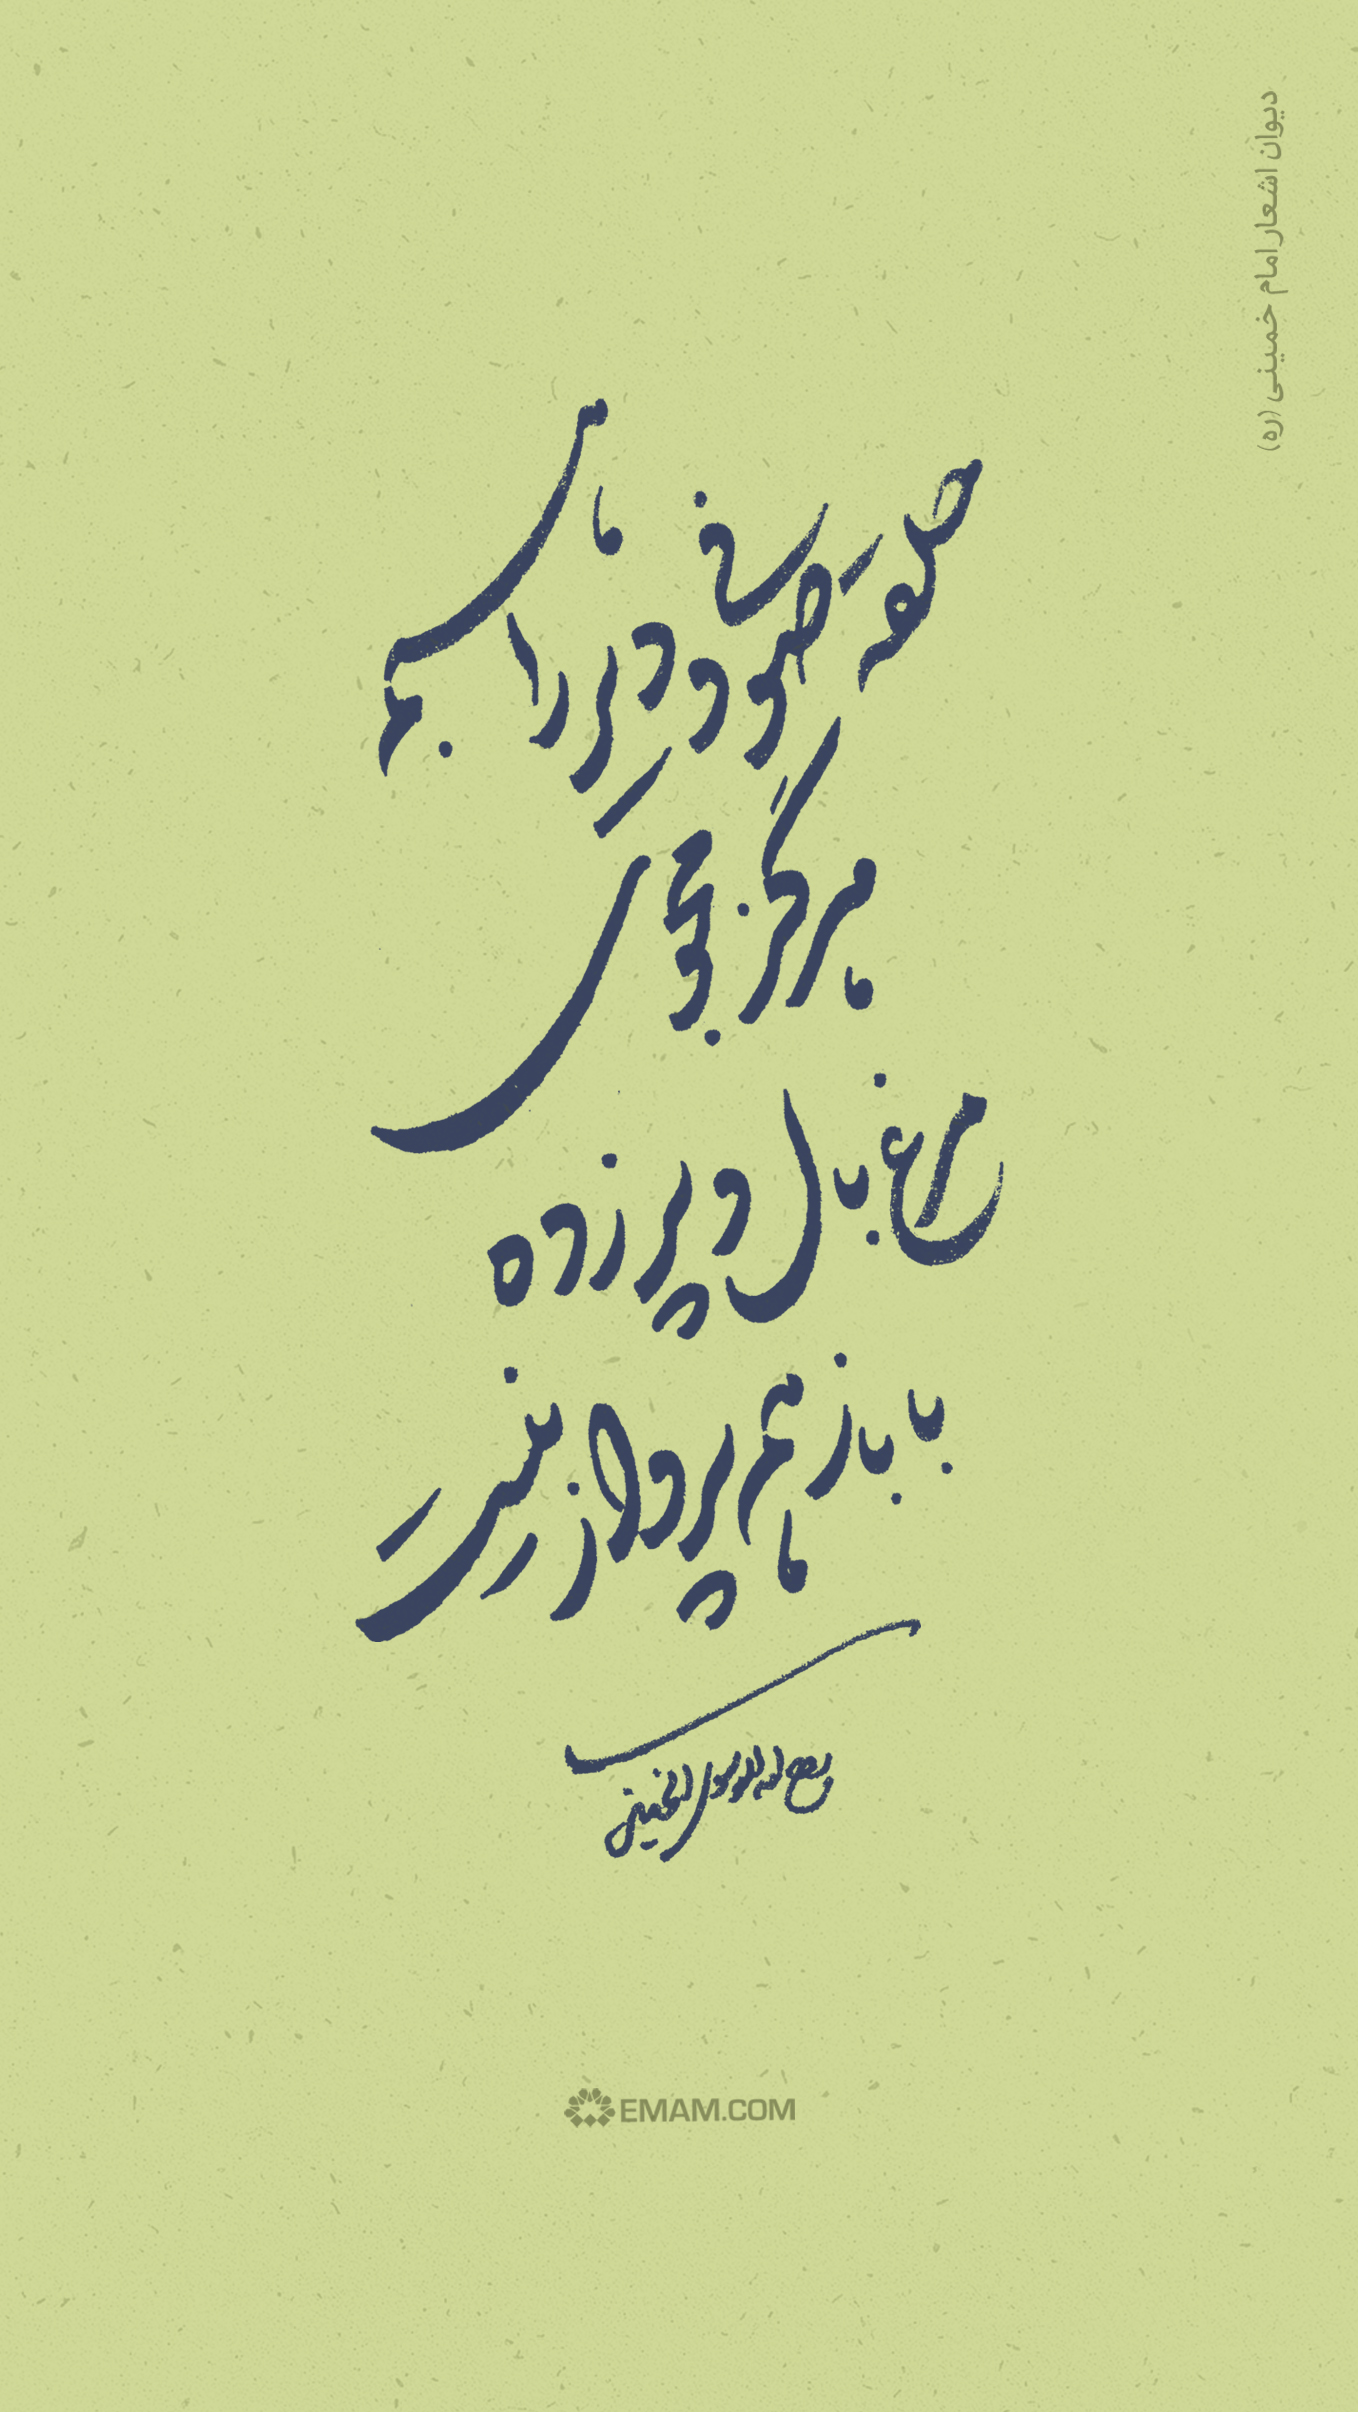 دیوان اشعار امام خمینی (ره)
حلقه صوفی و دیر راهبم
هرگز مجوی
مرغ بال و پر زده
با باز هم پرواز نیست
روح الله الموسوی الخمینی
EMAM.COM